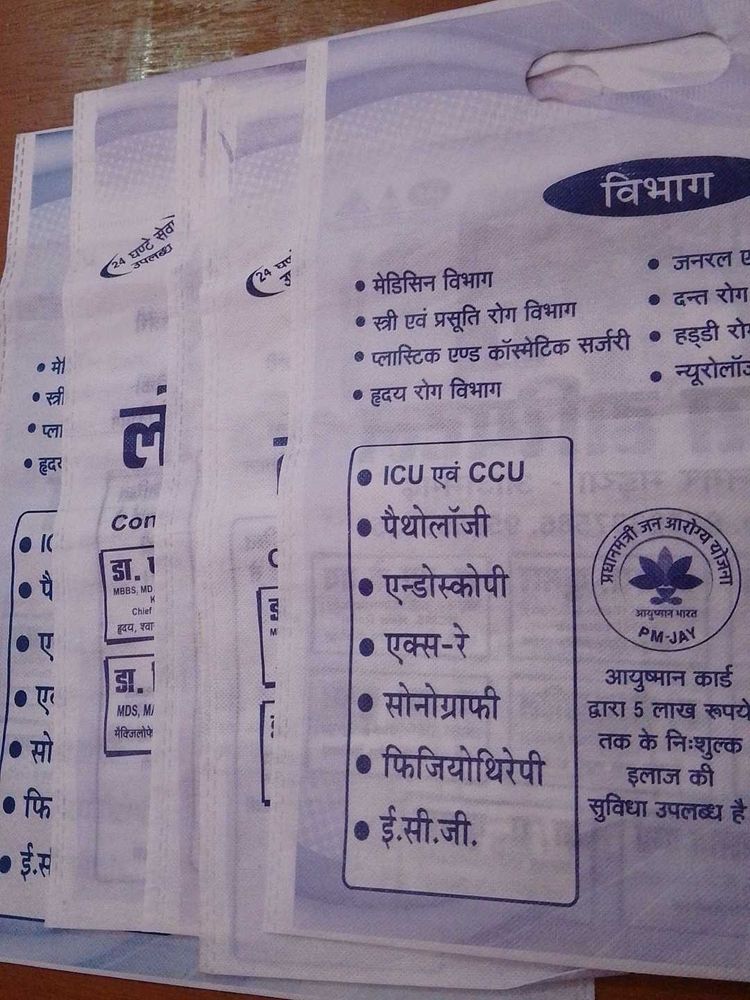 विभाग
• मेडिसिन विभाग
• स्त्री एवं प्रसूति रोग विभाग
• प्लास्टिक एण्ड कॉस्मेटिक सर्जरी
• हृदय रोग विभाग
• जनरल ए
• दन्त रोग
• हड्डी रो
• न्यूरोलॉज
• ICU एवं CCU
• पैथोलॉजी
• एन्डोस्कोपी
• एक्स-रे
• सोनोग्राफी
• फिजियोथिरेपी
• ई.सी.जी.
प्रधानमंत्री जन आरोग्य योजना
आयुष्मान भारत
PM-JAY
आयुष्मान कार्ड
द्वारा 5 लाख रूपये
तक के निःशुल्क
इलाज की
सुविधा उपलब्ध है
24 घण्टे सेवा
उपलब्ध
लं
Con
डा.
MBBS, MD
Chief
हृदय, श्वा
डा.
MDS, M
24 घण्
उ
• मे
• स्त्री
• प्ला
• हृदय
• IC
• पै
• ए
• एक
• सो
• फि
• ई.स